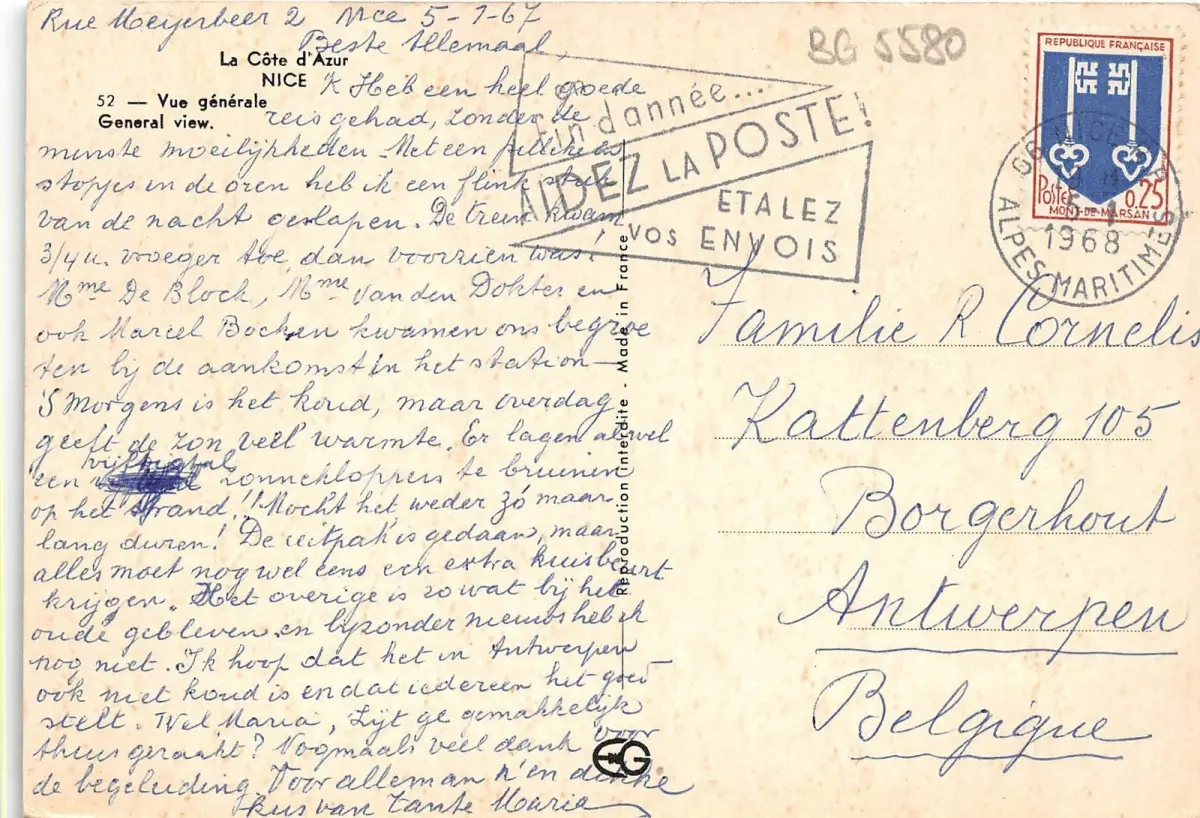 Rue Meyerbeer 2 Nice 5-1-67
Beste Allemaal,
La Côte d'Azur
NICE
52 — Vue générale
General view.
'k Heb een heel goede
reis gehad, zonder de
minste moeilijkheden. Met een pilleke en
stopjes in de oren heb ik een flink stuk
van de nacht geslapen. De trein kwam
3/4 u. vroeger toe, dan voorzien was!
Mme De Block, Mme Van den Dokter en
ook Marcel Bocken kwamen ons begroe
ten bij de aankomst in het station —
'S Morgens is het koud, maar overdag
geeft de zon veel warmte. Er lagen al wel
een vijftigtal zonnekloppers te bruinen
op het strand!! Mocht het weder zó maar
lang duren! De uitpak is gedaan, maar
alles moet nog wel eens een extra kuisbeurt
krijgen. Het overige is zowat bij het
oude gebleven en bijzonder nieuws heb ik
nog niet. Ik hoop dat het in Antwerpen
ook niet koud is en dat iedereen het goed
stelt. Wel Maria, zijt ge gemakkelijk
thuis geraakt? Nogmaals veel dank voor
de begeleiding Voor alleman 'n en dikke
kus van tante Maria
Reproduction interdite - Made in France
EG
BG 5580
Fin d'année...
AIDEZ LA POSTE!
ETALEZ
VOS ENVOIS
REPUBLIQUE FRANÇAISE
Postes 0,25
MONT-DE-MARSAN
06 NICE
5-1
1968
ALPES-MARITIMES
Familie R Cornelis
Kattenberg 105
Borgerhout
Antwerpen
Belgique